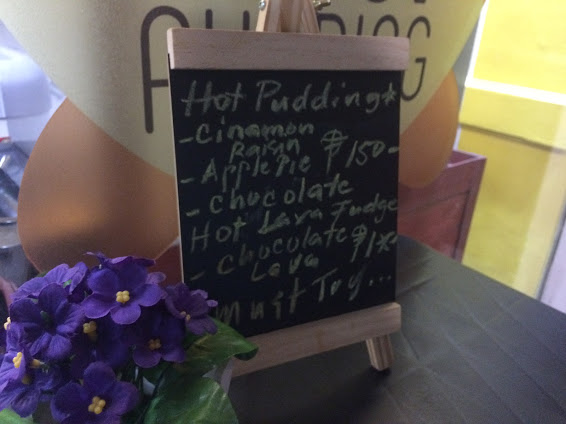 PUDDING
Hot Pudding*
-Cinamon
Raisin
-Apple Pie ₱150-
-chocolate
Hot Lava Fudge
-chocolate
Lava
Must Try...